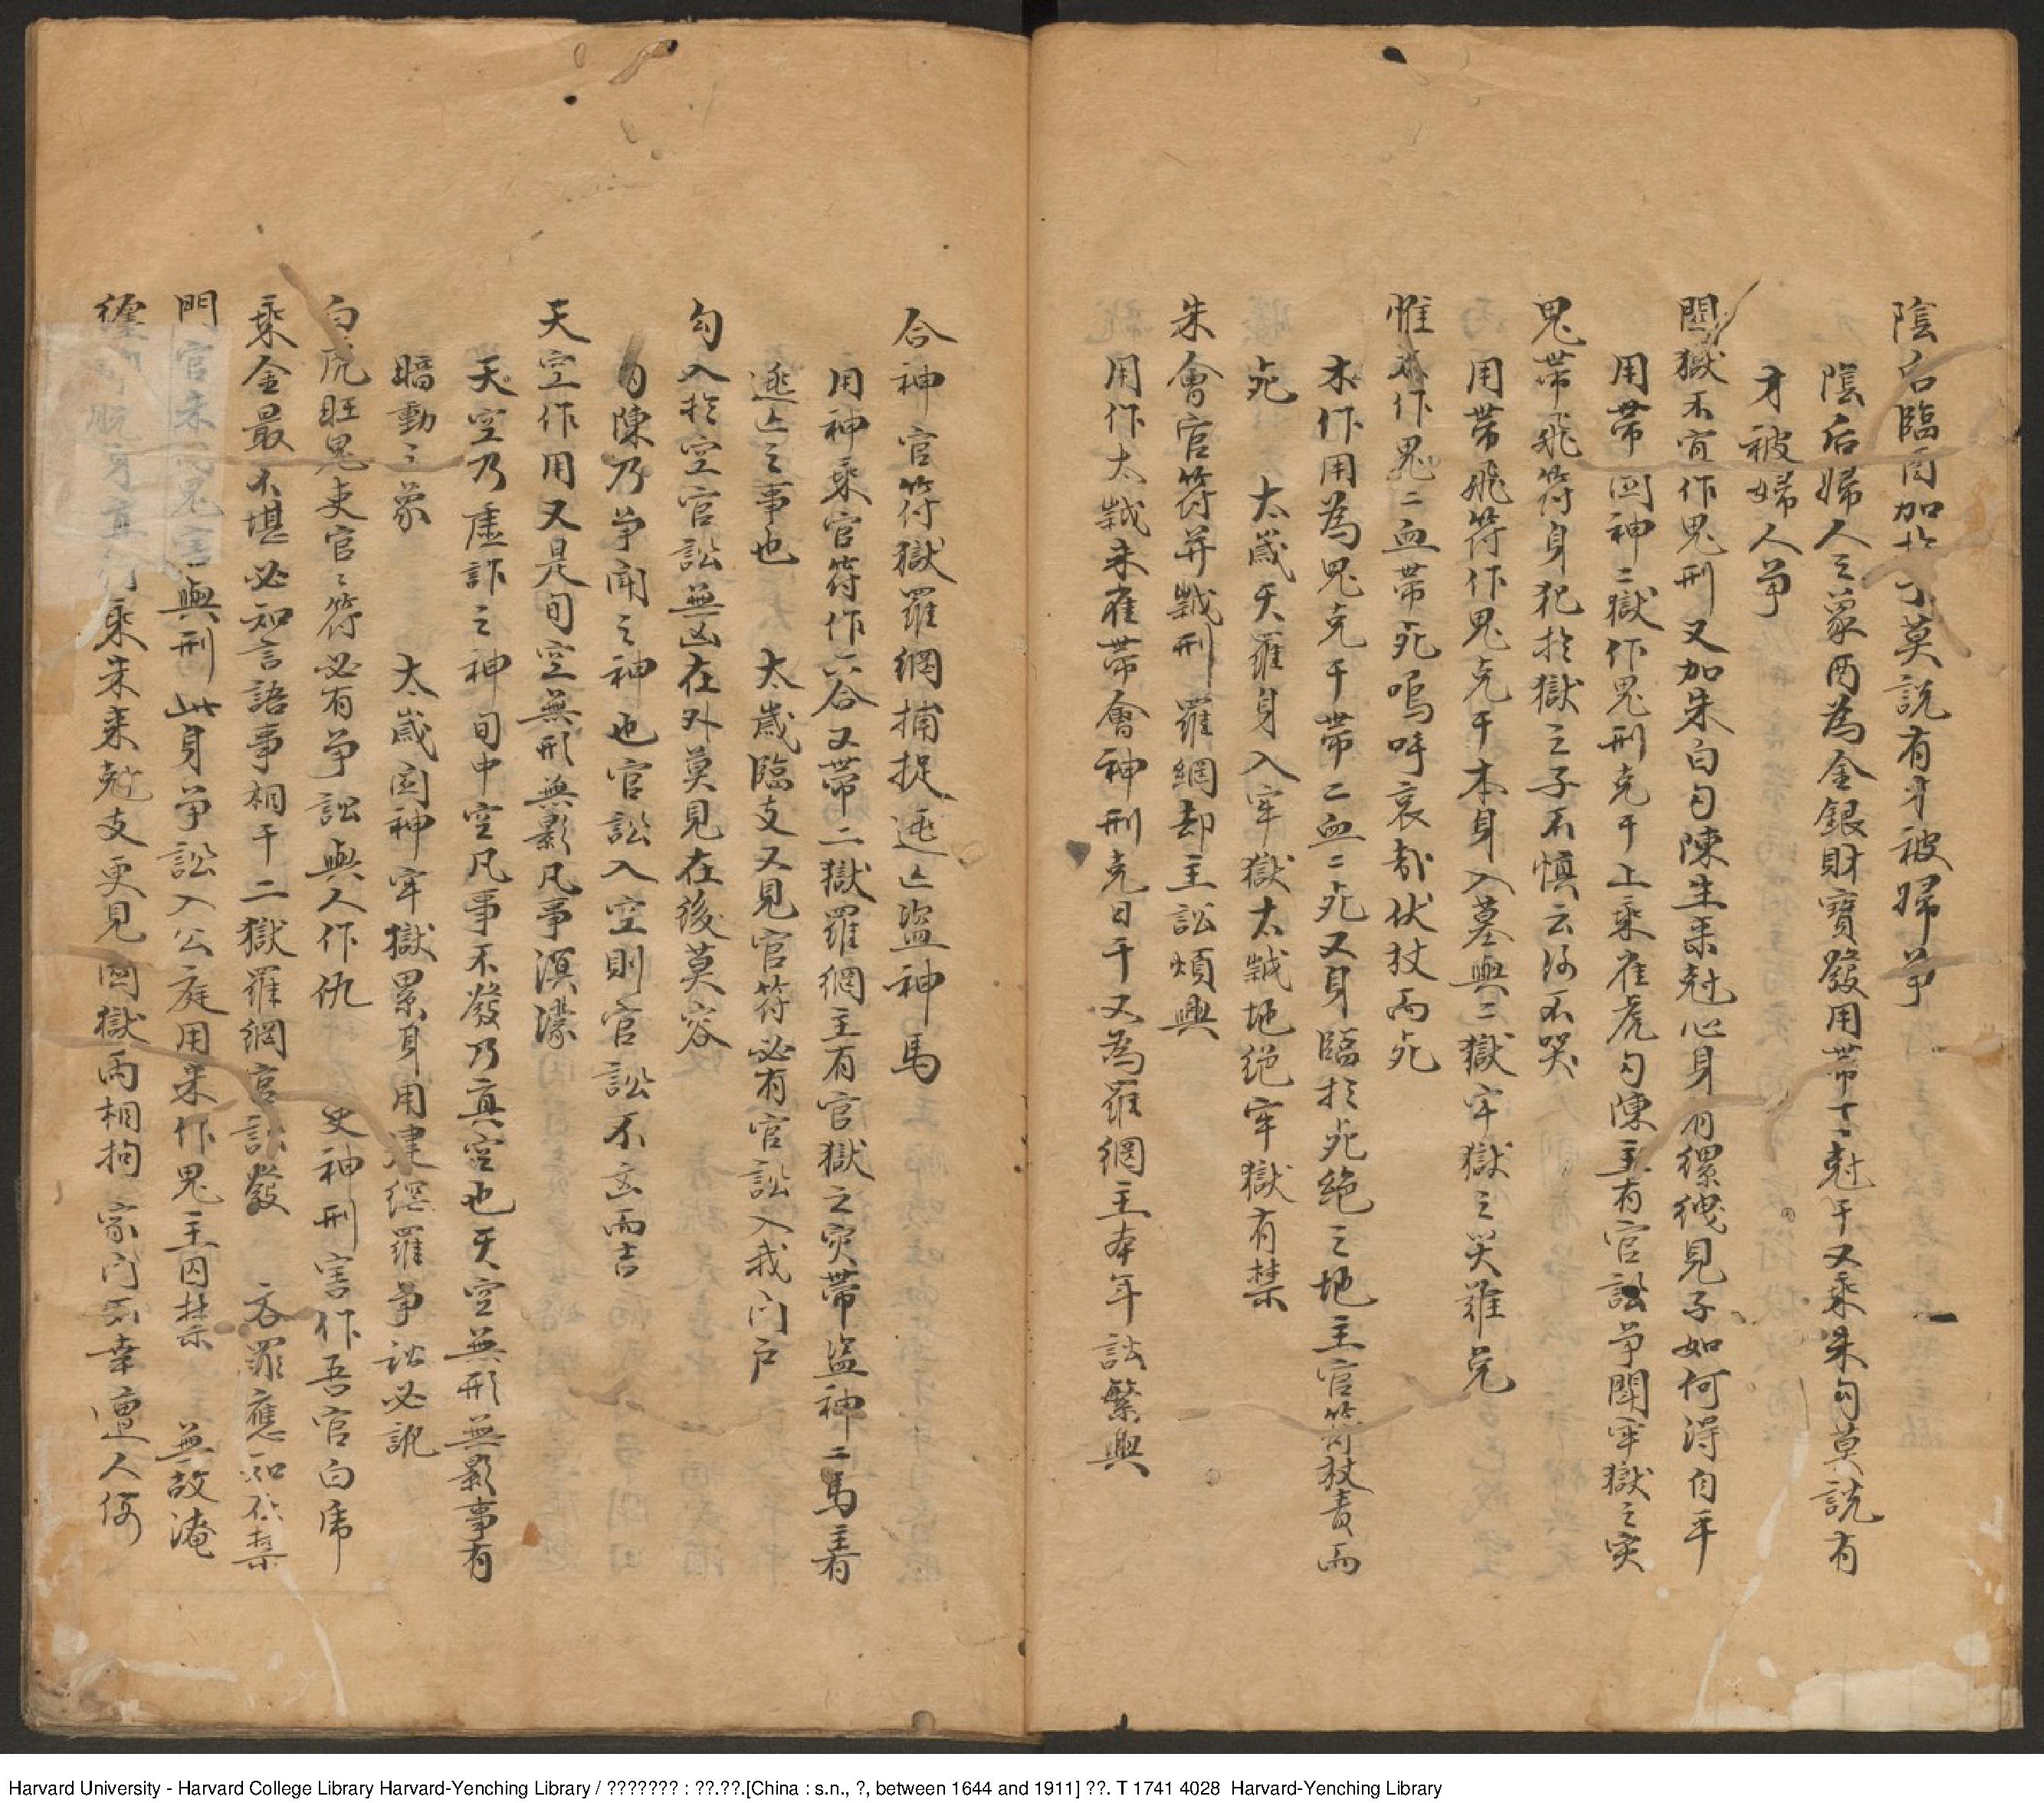 陰后臨酉加於丁莫說有才被婦爭
陰后婦人之象酉為金銀財寶發用帶丁丁尅干又乘朱勾莫說有
才被婦人爭
關獄不宜作鬼刑又加朱白勾陳生乘尅心身有縲絏見子如何得自平
用帶囚神二獄作鬼刑克干上乘雀虎勾陳主有官訟爭鬪牢獄之災
鬼帶飛符身犯於獄之子不慎云洛不哭
用帶飛符作鬼克干本身入墓與二獄牢獄之災難免
惟木作鬼二血帶死嗚呼哀哉伏杖而死
木作用為鬼克干帶二血二死又身臨於死絕之地主官符杖責而
死　太歲天羅身入牢獄太歲地絕牢獄有禁
朱會官符并歲刑羅網却主訟煩興
用作太歲朱雀帶會神刑克日干又為羅網主本年訟繁興
合神官符獄羅網捕捉逃亡盜神馬
用神乘官符作六合又帶二獄羅網主有官獄之灾帶盜神二馬主有
逃亡之事也　太歲臨支又見官符必有官訟入我门户
勾入於空官訟無凶在外莫見在後莫容
勾陳乃爭鬧之神也官訟入空則官訟不凶而吉
天空作用又是旬空無形無影凡事溟濛
天空乃虛詐之神旬中空凡事不發乃真空也天空無形無影事有
暗動之象　太歲囚神牢獄累身用建網羅爭訟必訊
白虎旺鬼吏官官符必有爭訟與人作仇　吏神刑害作吾官白虎
乘金最不堪必知言語事相干二獄羅網官訟發　吞罪應知在禁
門官朱丙鬼害與刑此身爭訟入公庭用朱作鬼主囚禁　無故淹
纏身直符乘朱来尅支更見囚獄两相拘家门不幸遭人侮